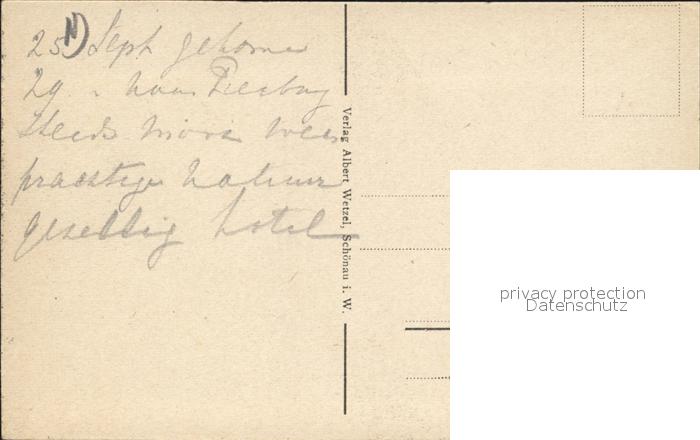 25 Sept gekomen
29 " naar
Steeds mooi weer
prachtige natuur
gezellig hotel
Verlag Albert Wetzel, Schönau i. W.
privacy protection
Datenschutz